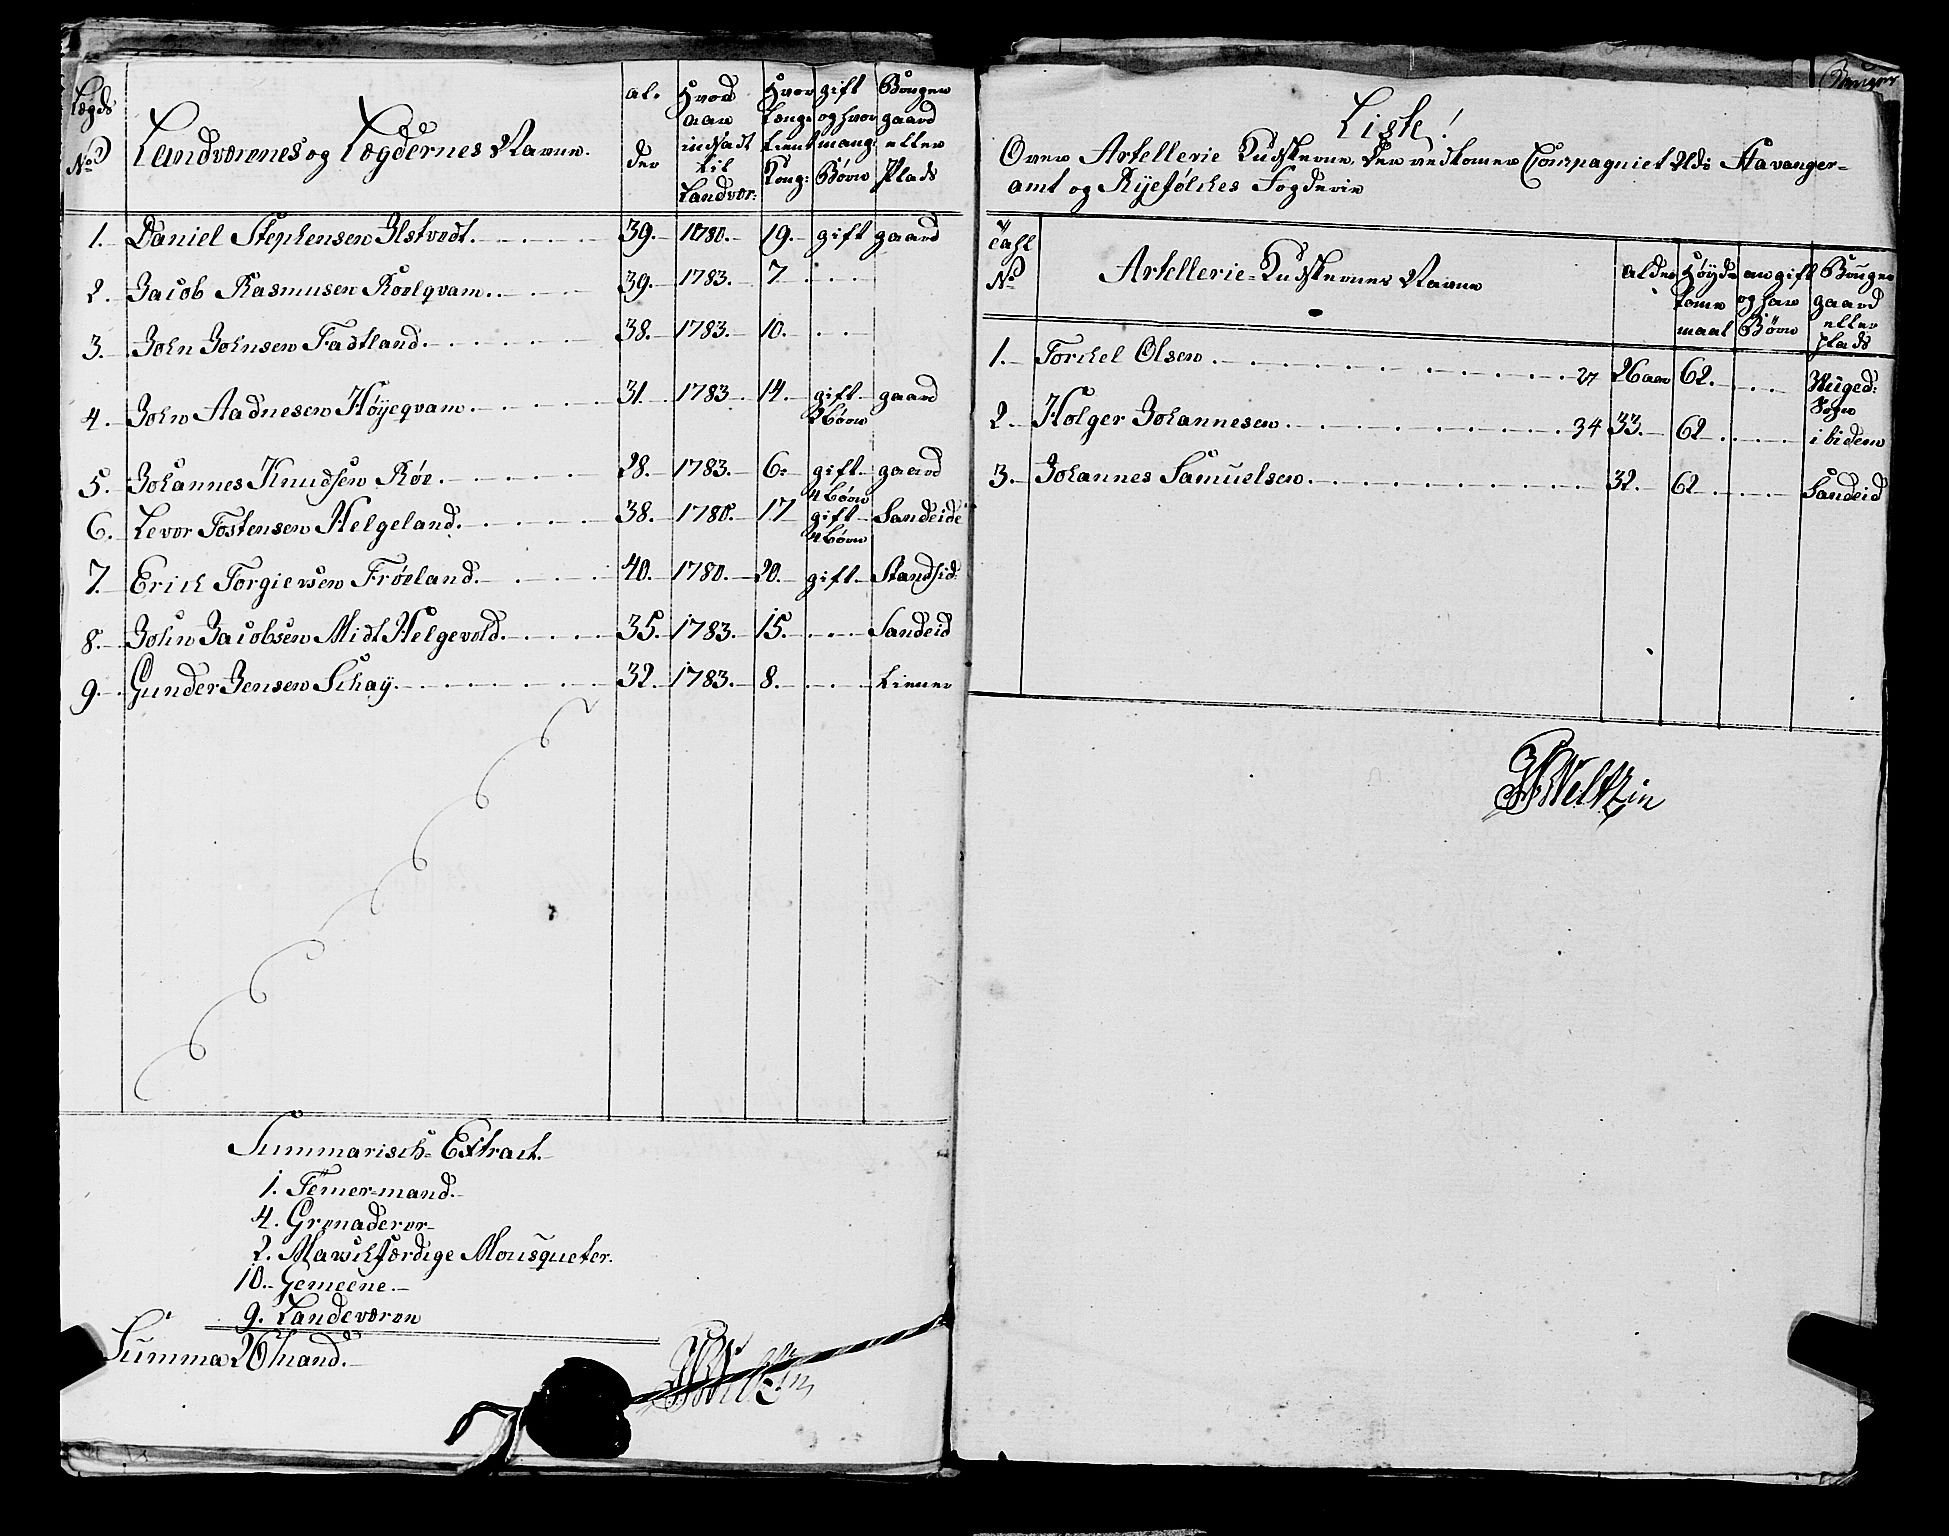 Lægds No
Landværenes og Lægdernes Navne.
al- der
Hvad aar indsadt til Landvær:
Hvor Længe tient Kong:
gift og hvor mang: Børn
Bruger gaard eller Plads
1. Daniel Stephensen Ilstvedt. 39. 1780. 19. gift gaard
2. Jacob Rasmusen Rörlqvam. 39. 1783. 7
3. John Johnsen Fadtland. 38. 1783. 10.
4. John Aadnesen Høyeqvam. 31. 1783 14. gift 2 börn gaard
5. Johannes Knudsen Röe. 28. 1783. 6. gift 4 börn gaard
6. Levor Tostensen Helgeland. 38. 1780. 17 gift 4 börn Sandeide
7. Erich Torgiersen Fröeland. 40. 1780. 20. gift Standsid
8. John Jacobsen Midt Helgevold. 35. 1783. 15. Sandeid
9. Gunder Jensen Schaÿ. 32. 1783. 8. Liener
Summarisch Extract.
1. Temermand.
4. Grenaderer
2. Marschfærdige Mousqueter.
10. Gemeene.
9. Landeværen
Summa 26 Mand.
HWeltzin
Liste!
Over Artellerie Kudskerne, der vedkomer Compagniet Udi Stavanger-
amt og Ryefölckes Fogderie
Tahl No
Artellerie-Kudskernes Navne
alder
Høyde tome maal
an gift og har Börn
Bruger gaard eller plads
1. Torchel Olsen. 27 26 aar 62.
Sogn
2. Holger Johannesen. 34 33. 62 ibidem
3. Johannes Samuelsen. 32. 62 Sandeid
HWeltzin